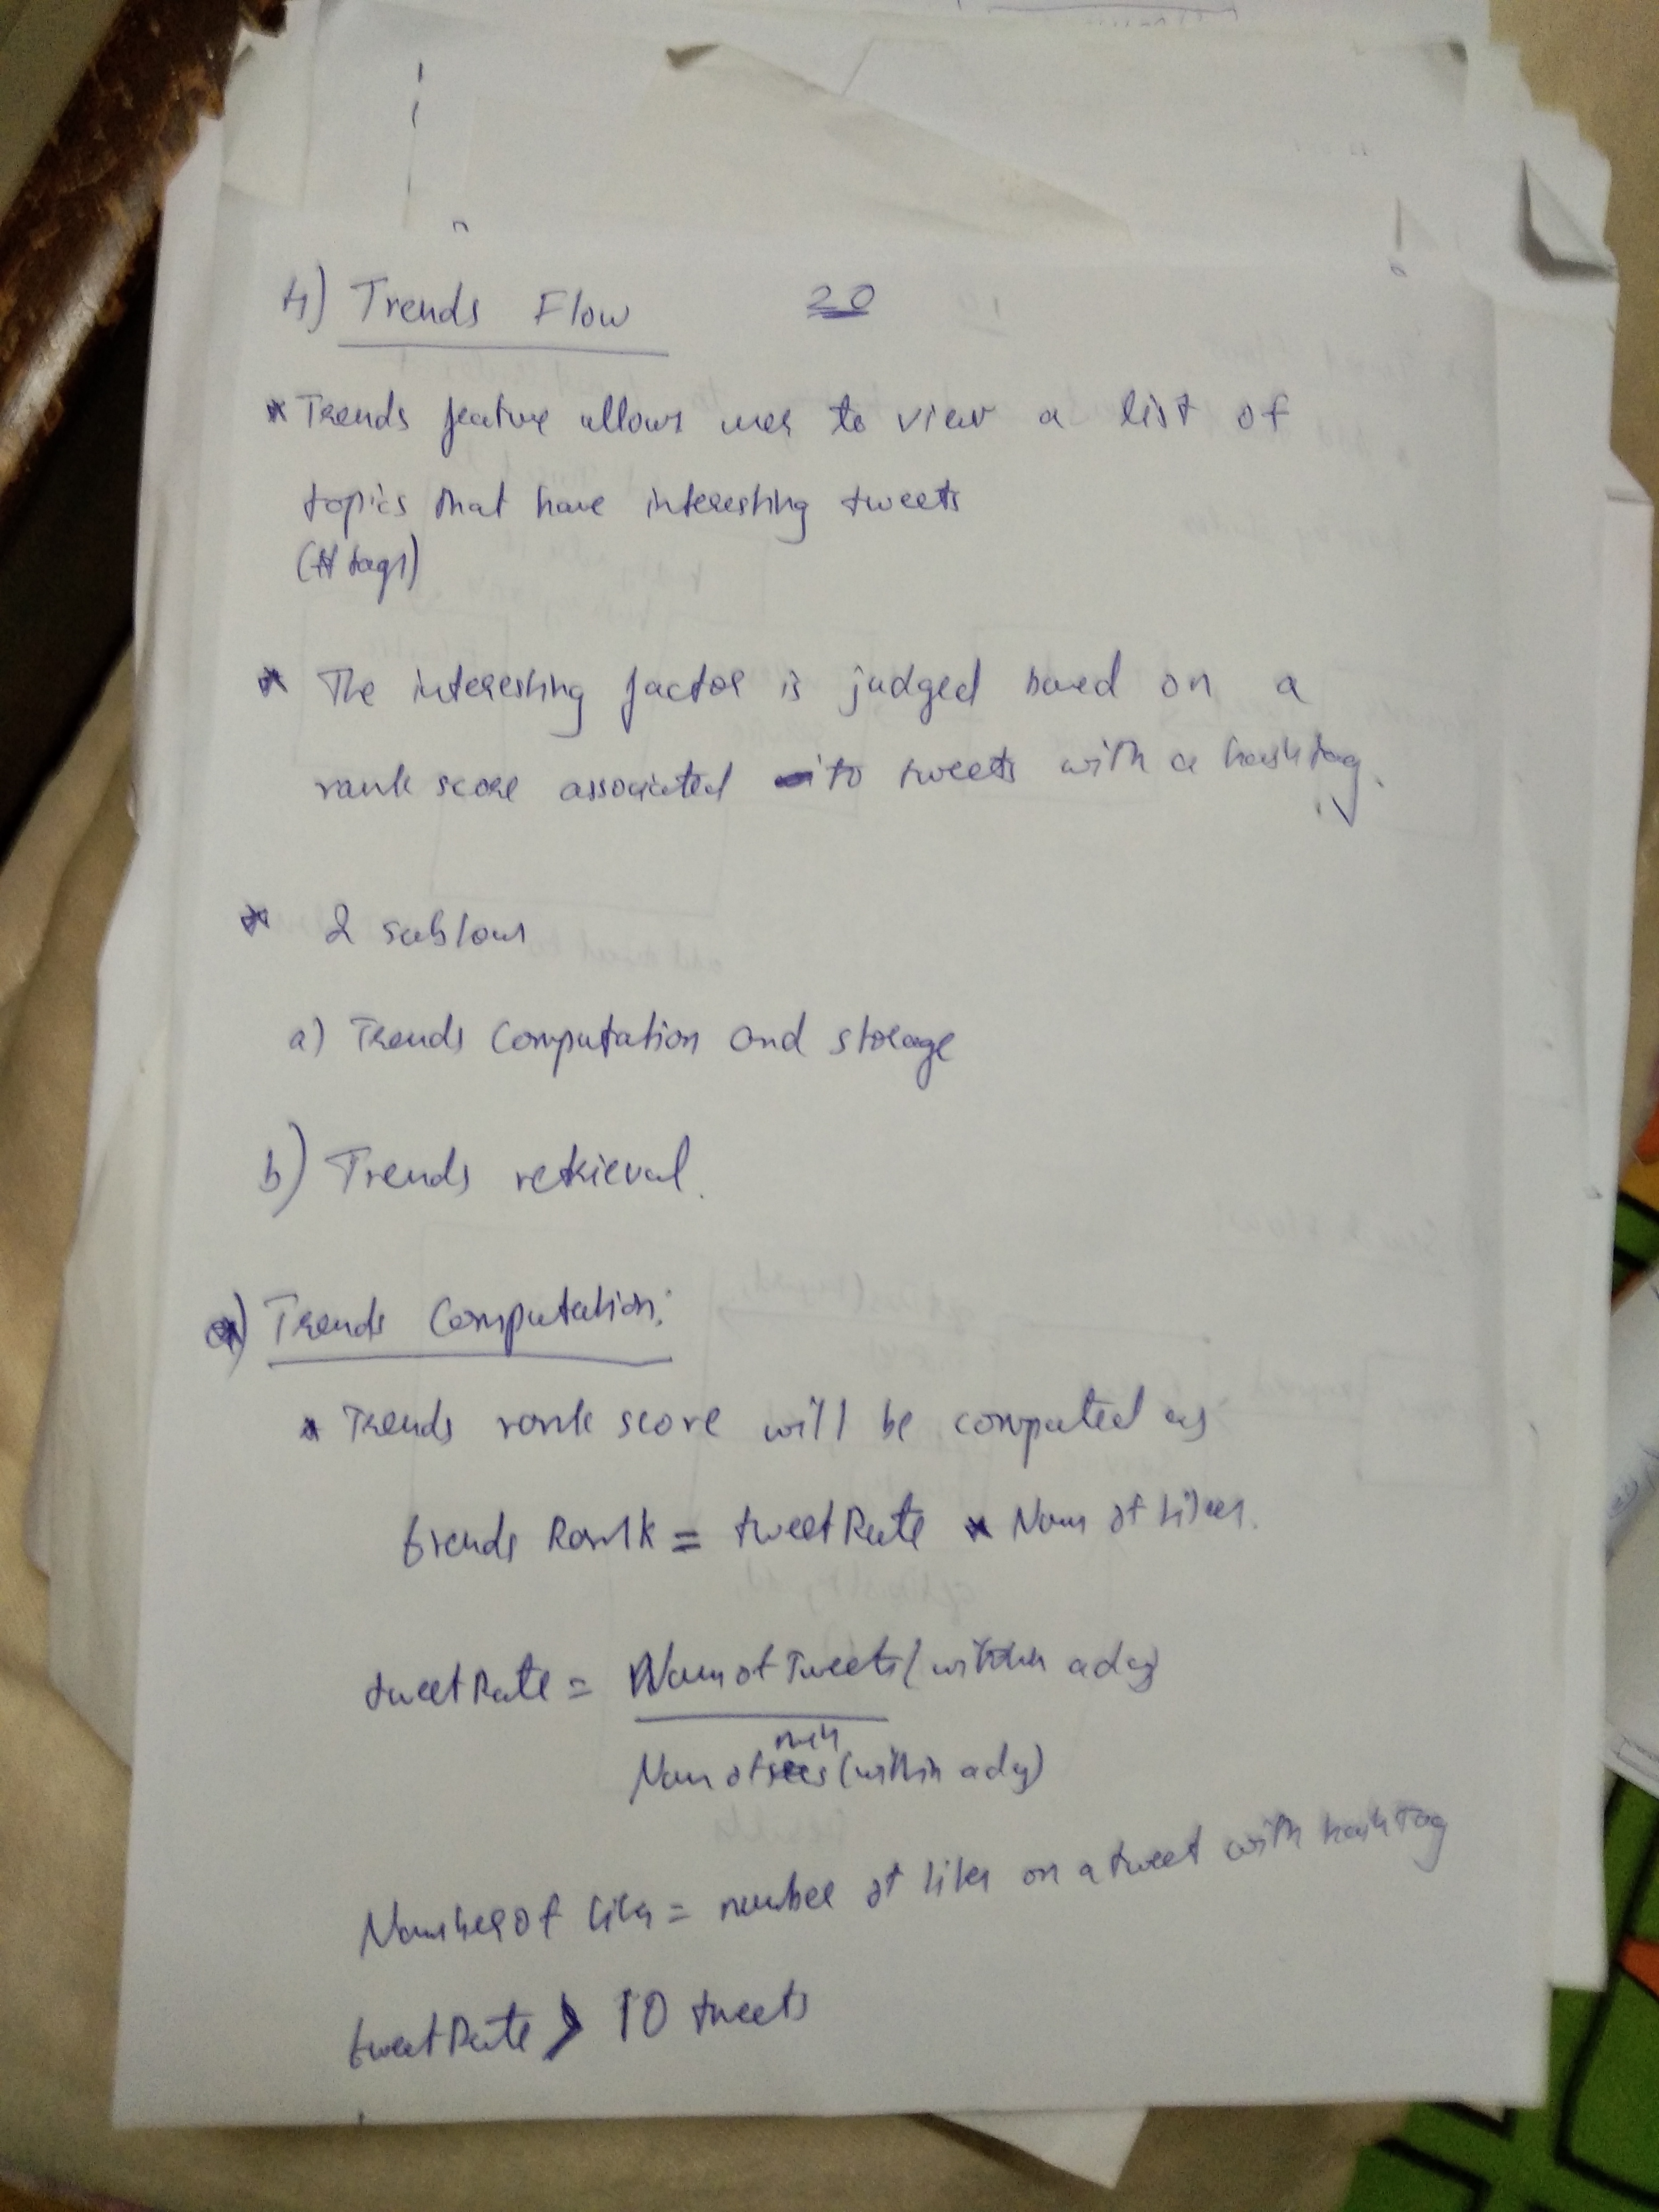 4) Trends Flow 20
* Trends feature allows user to view a list of
topics that have interesting tweets
(# tags)
* The interesting factor is judged based on a
rank score associated to tweets with a hashtag.
* 2 subflows
a) Trends Computation and storage
b) Trends retrieval.
a) Trends Computation:
* Trends rank score will be computed as
trends Rank = tweetRate * Num of Likes.
tweetRate = Num of Tweets (within a day)
min
Num of (within a day)
Number of likes = number of likes on a tweet with hashtag
tweetRate > 10 tweets